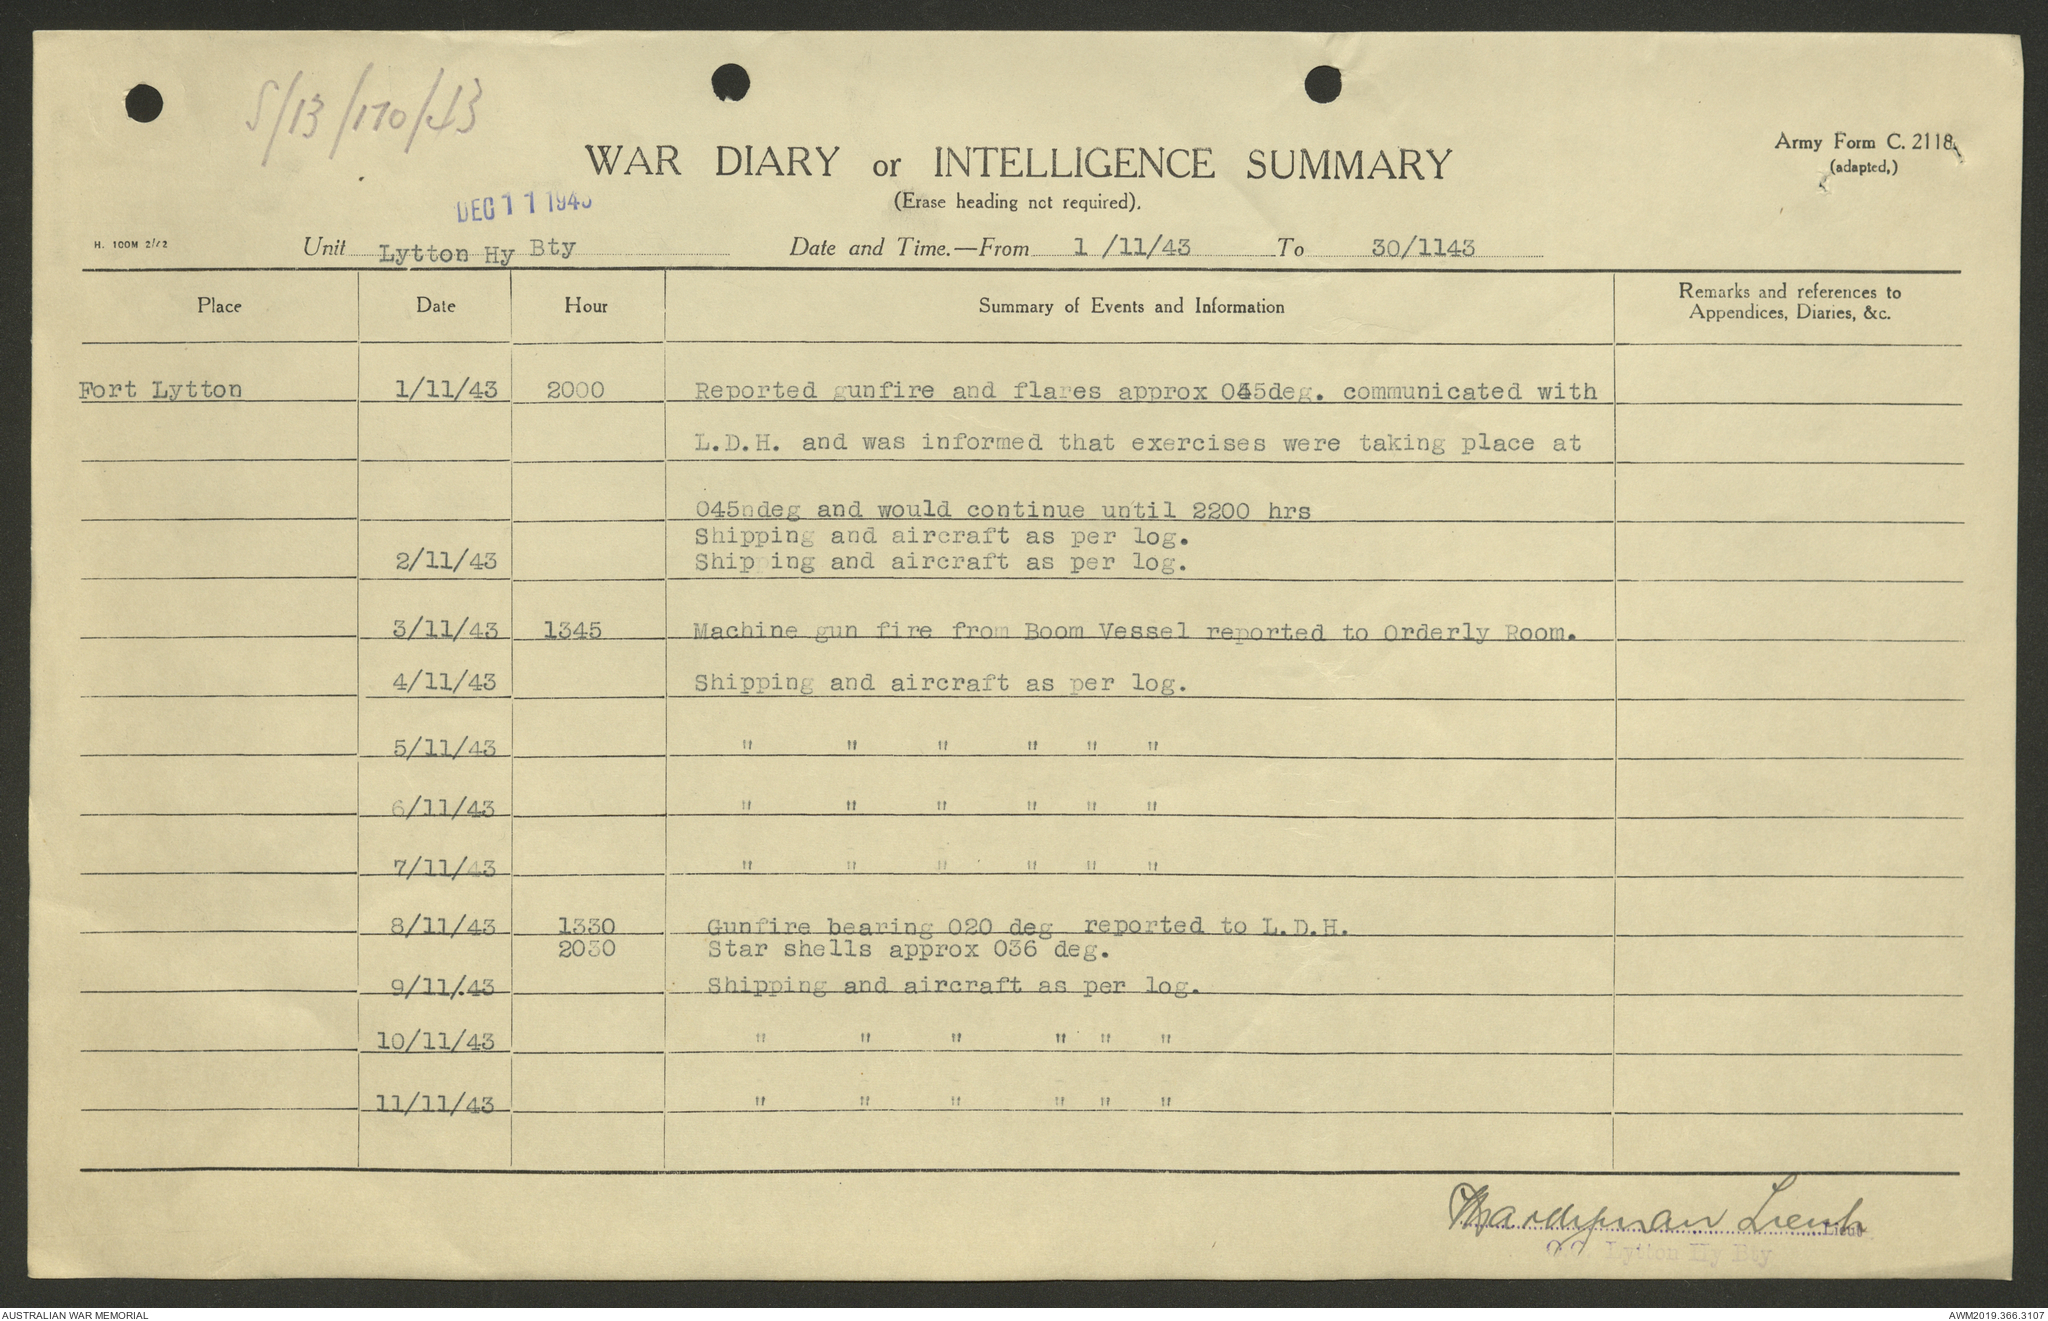 S/13/170/43
WAR DIARY or INTELLIGENCE SUMMARY
Army Form C. 2118.
(adapted,)
(Erase heading not required).
DEC 11 1943
H. 100M 2/42
Unit Lytton Hy Bty Date and Time.—From 1 /11/43 To 30/1143
Place Date Hour Summary of Events and Information Remarks and references to
Appendices, Diaries, &c.
Fort Lytton 1/11/43 2000 Reported gunfire and flares approx 045deg. communicated with
L.D.H. and was informed that exercises were taking place at
045ndeg and would continue until 2200 hrs
Shipping and aircraft as per log.
2/11/43 Shipping and aircraft as per log.
3/11/43 1345 Machine gun fire from Boom Vessel reported to Orderly Room.
4/11/43 Shipping and aircraft as per log.
5/11/43 " " " " " "
6/11/43 " " " " " "
7/11/43 " " " " " "
8/11/43 1330 Gunfire bearing 020 deg reported to L.D.H.
2030 Star shells approx 036 deg.
9/11/.43 Shipping and aircraft as per log.
10/11/43 " " " " " "
11/11/43 " " " " " "
Lieut
Lieut
O.C. Lytton Hy Bty
AUSTRALIAN WAR MEMORIAL
AWM2019.366.3107